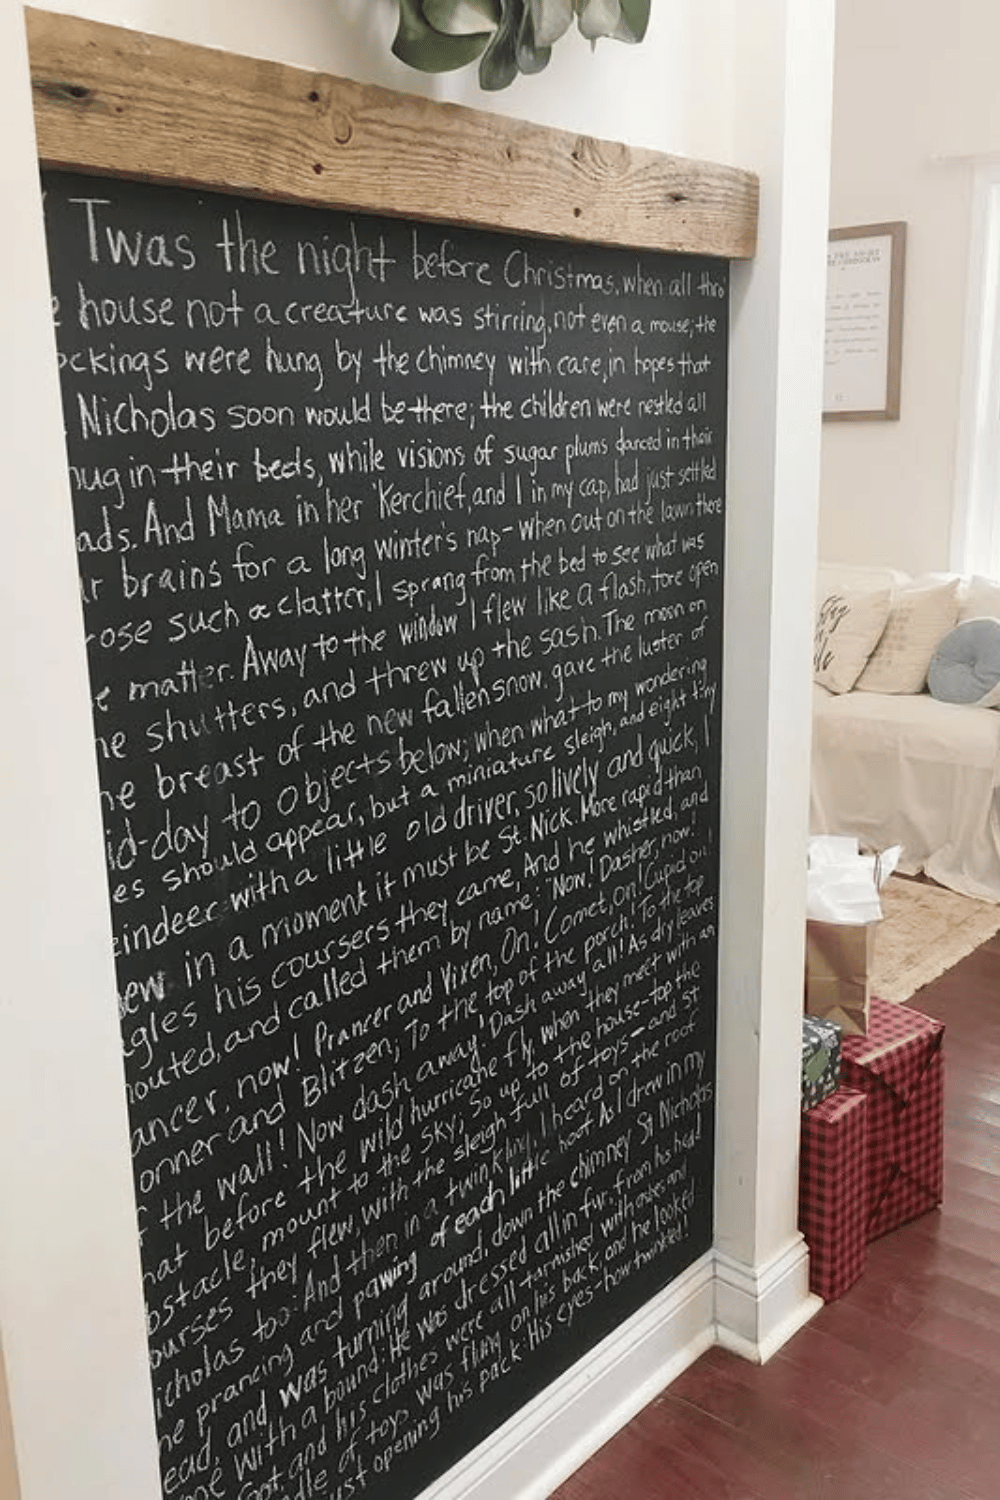 Twas the night before Christmas, when all thro
house not a creature was stirring, not even a mouse; the
ockings were hung by the chimney with care, in hopes that
Nicholas soon would be there; the children were nestled all
nug in their beds, while visions of sugar plums danced in their
ads. And Mama in her 'Kerchief, and I in my cap, had just settled
ur brains for a long winter's nap- when out on the lawn there
rose such a clatter, I sprang from the bed to see what was
e matter. Away to the window I flew like a flash, tore open
he shutters, and threw up the sash. The moon on
he breast of the new fallen snow, gave the luster of
id-day to objects below; when what to my wondering
es should appear, but a miniature sleigh, and eight tiny
eindeer with a little old driver, so lively and quick, I
new in a moment it must be St. Nick. More rapid than
agles his coursers they came, And he whistled, and
houted, and called them by name: "Now! Dasher, now!
ancer, now! Prancer and Vixen, On! Comet, on! Cupid on!
onner and Blitzen; To the top of the porch! To the top
f the wall! Now dash away! Dash away all! As dry leaves
hat before the wild hurricane fly, when they meet with an
bstacle, mount to the sky; So up to the house-top the
ourses they flew, with the sleigh full of toys - and St
icholas too: And then in a twinkling, I heard on the roof
he prancing and pawing of each little hoof. As I drew in my
ead, and was turning around, down the chimney St Nicholas
me With a bound: He was dressed all in fur, from his head
foot, and his clothes were all tarnished with ashes and
dle of toys was flung on his back, and he looked
ust opening his pack. His eyes - how twinkled!